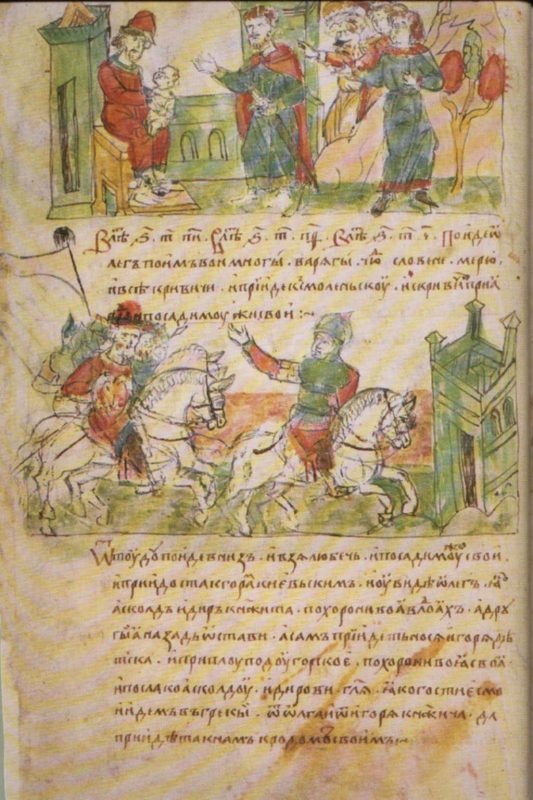 В лѣⷮ . ѕ҃ . т҃ . п҃и . В лѣⷮ . ѕ҃ . т҃ . п҃ѳ . В лѣⷮ . ѕ҃ . т҃ . ч҃ . Поиде ѡ
легъ поимъ вои многы . варѧгы . чюⷣ словене . мерю .
и всѣ кривичи . и прїиде к смоленьскоу . и с кривичи приꙗ
и посади моу свои :~
Ѿтоудоу поиде внизъ . и взѧ любечь . и посади моу свои .
и прїидоста к гораⷨ киевьскимъ . и оувидѣ ѡлегъ . ꙗко
асколдъ и диръ кнѧжита . похорони воа в лодⷽахъ . а дрꙋ
гыа назадь ѡстави . а самъ прїиде носѧ игорѧ дѣ
тска . и приплоу под оугорское . похорони воа своа
и посла ко асколдоу . и дирови . глѧ . ꙗко гостие есмо
и идемъ въ грекы . ѿ ѡлга и ѿ игорѧ кнѧжича . да
прїидѣта к намъ к родомъ своимъ :~